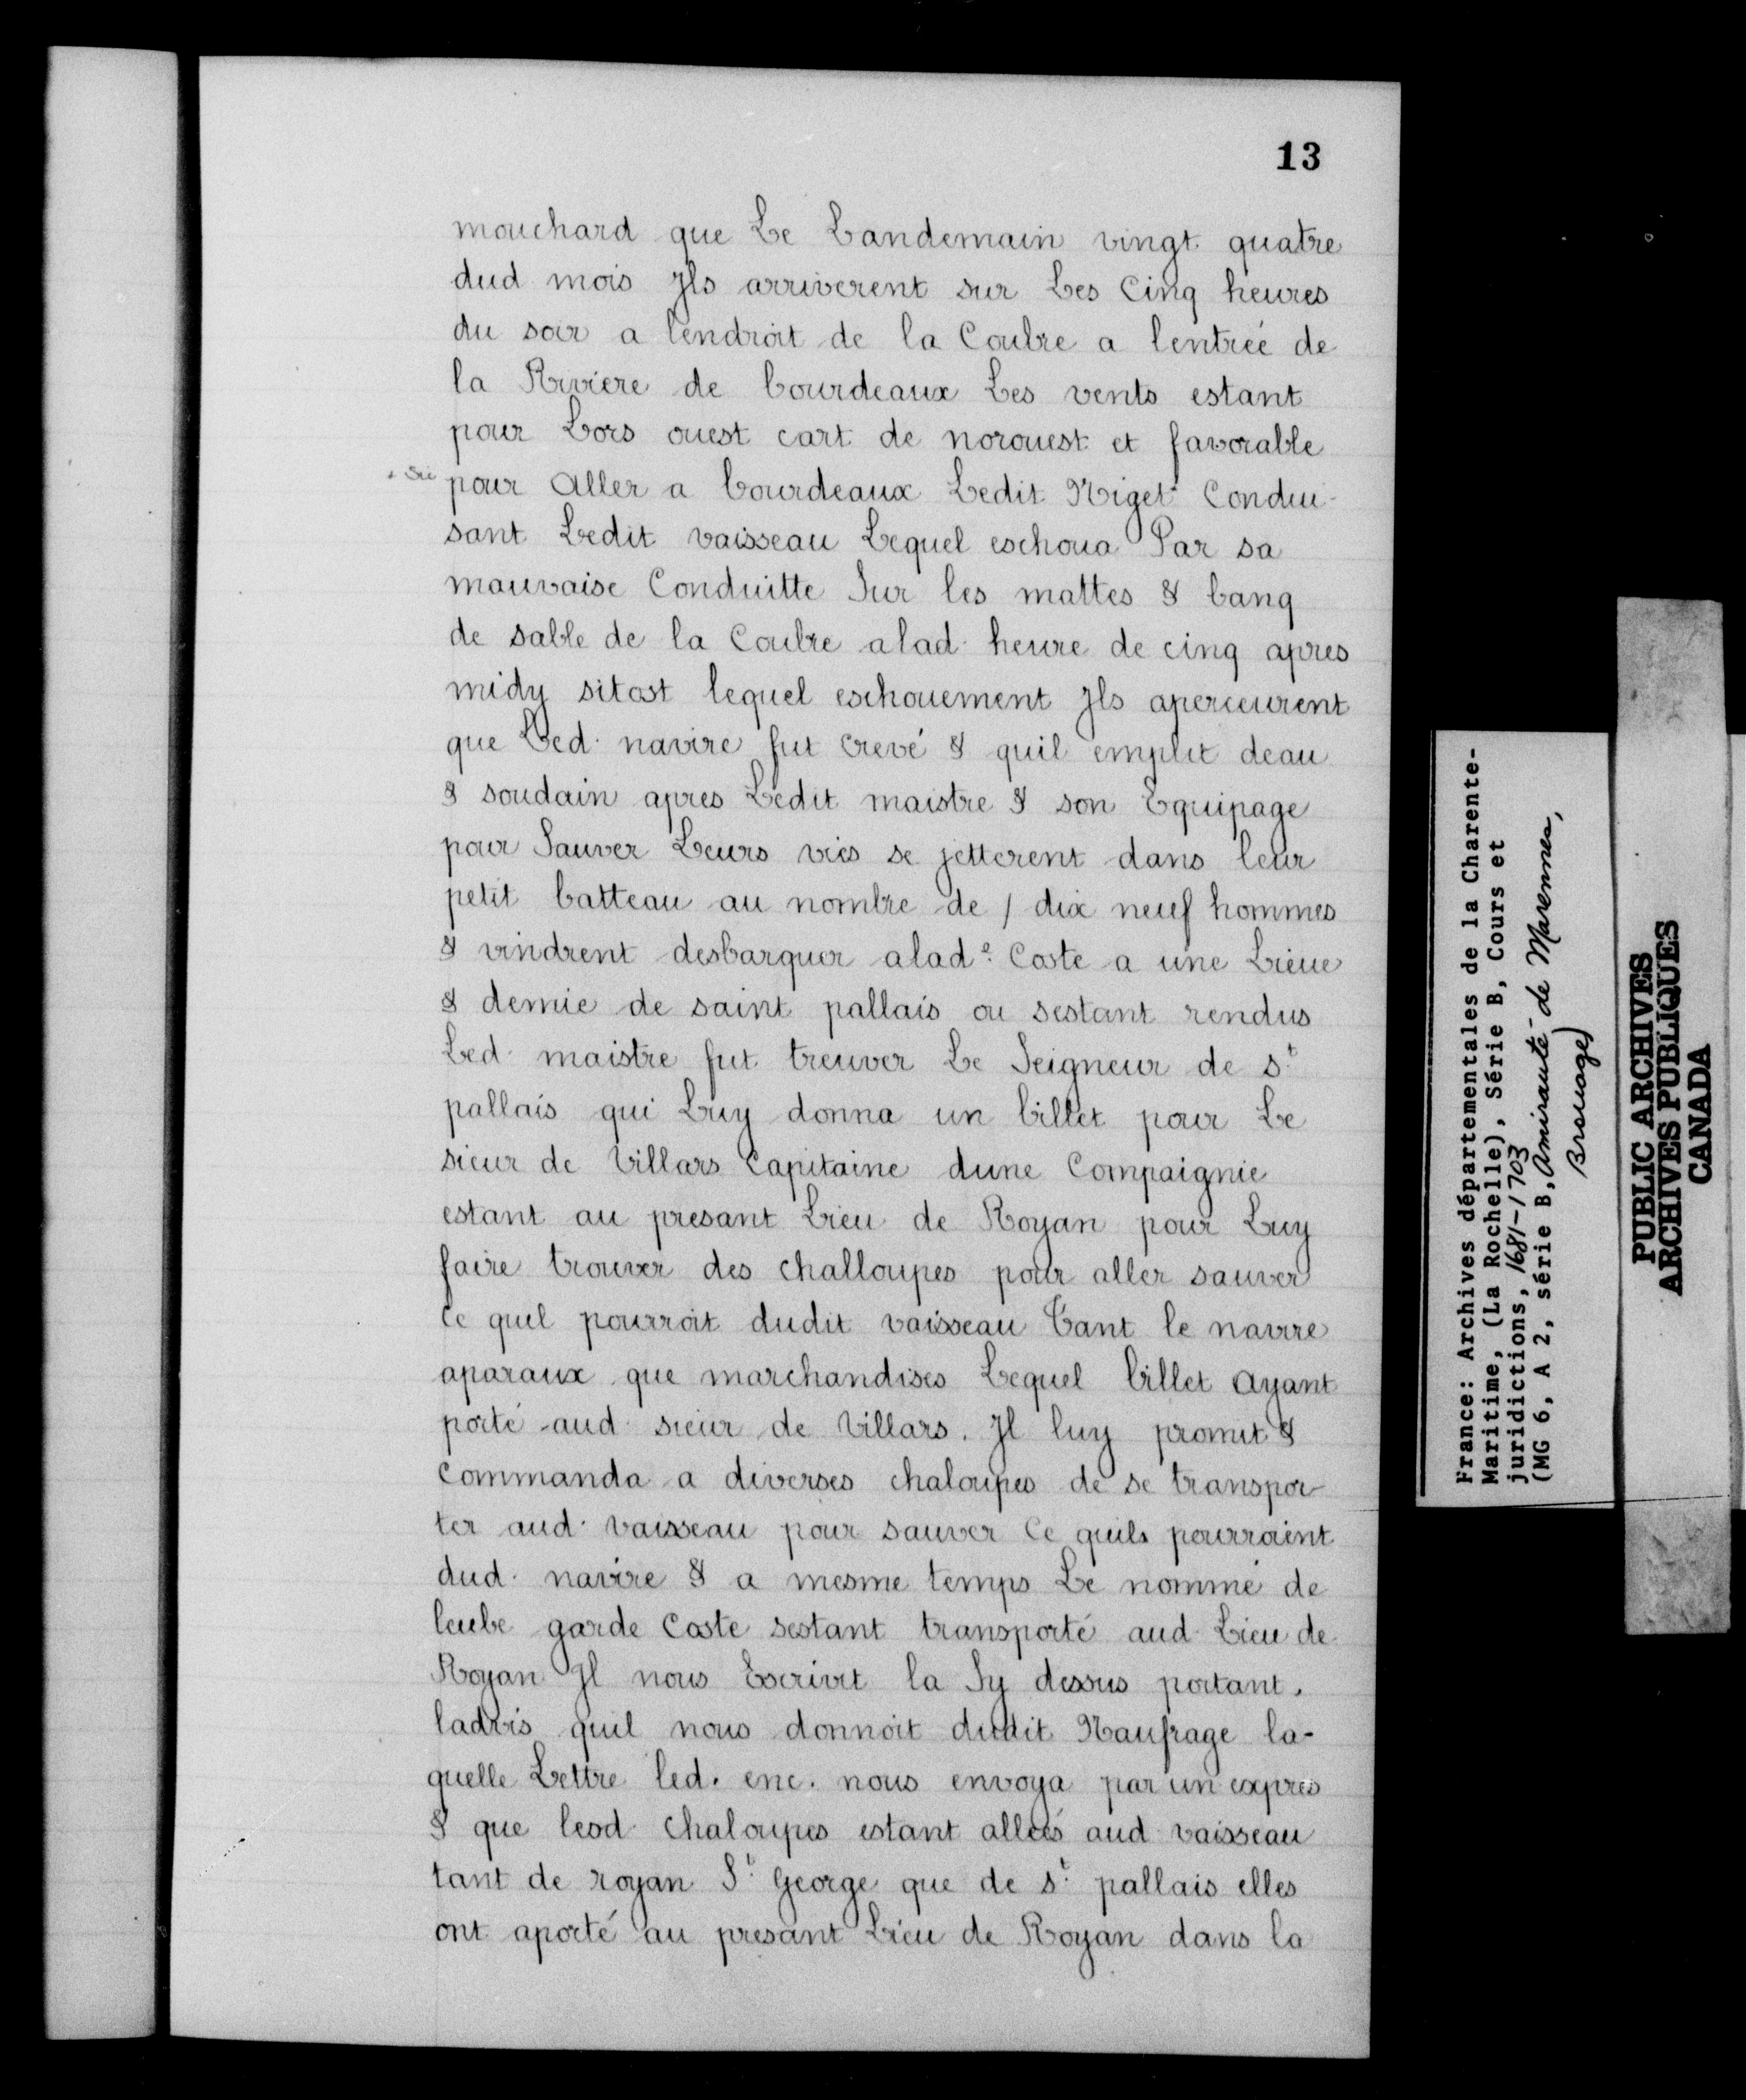 13
mouchard que Le Landemain vingt quatre
dud mois Jls arriverent sur Les Cinq heures
du soir a lendroit de la Coubre a lentreé de
la Riviere de bourdeaux Les vents estant
pour Lors ouest cart de norouest et favorable
pour Aller a bourdeaux Ledit Niget Condui-
sant Ledit vaisseau Lequel eschoua Par sa
mauvaise Conduitte Sur les mattes & banq
de sable de la Coubre alad. heure de cinq apres
midy sitost lequel eschouement Jls aperceurent
que Led. navire fut crevé & quil emplit deau
& soudain apres Ledit maistre & son Equipage
pour Sauver Leurs vies se jetterent dans leur
petit batteau au nombre de / dix neuf hommes
& vindrent desbarquer alad.e Coste a une Lieue
& demie de saint pallais ou sestant rendus
Led. maistre fut treuver Le Seigneur de st
pallais qui Luy donna un billet pour Le
sieur de Villars Capitaine dune Compaignie
estant au presant Lieu de Royan pour Luy
faire trouver des challoupes pour aller sauver
Ce quil pourroit dudit vaisseau Tant le navire
aparaux que marchandises Lequel billet Ayant
porté aud. sieur de Villars. Jl luy promit &
Commanda a diverses chaloupes de se transpor-
ter aud. vaisseau pour sauver Ce quils pourroint
dud. navire & a mesme temps Le nommé de
leube garde Coste sestant transporté aud. Lieu de
Royan Jl nous Escrivit la Sy dessus portant.
ladvis quil nous donnoit dudit Naufrage la-
quelle Lettre led. enc. nous envoya par un expres
& que lesd. Chaloupes estant alleés aud. vaisseau
tant de royan St George que de st pallais elles
ont aporté au presant Lieu de Royan dans la
France: Archives départementales de la Charente-
Maritime, (La Rochelle), Série B, Cours et
juridictions, 1681-1703
(MG 6, A 2, série B, Amirauté de Marennes,
Brouage)
PUBLIC ARCHIVES
ARCHIVES PUBLIQUES
CANADA